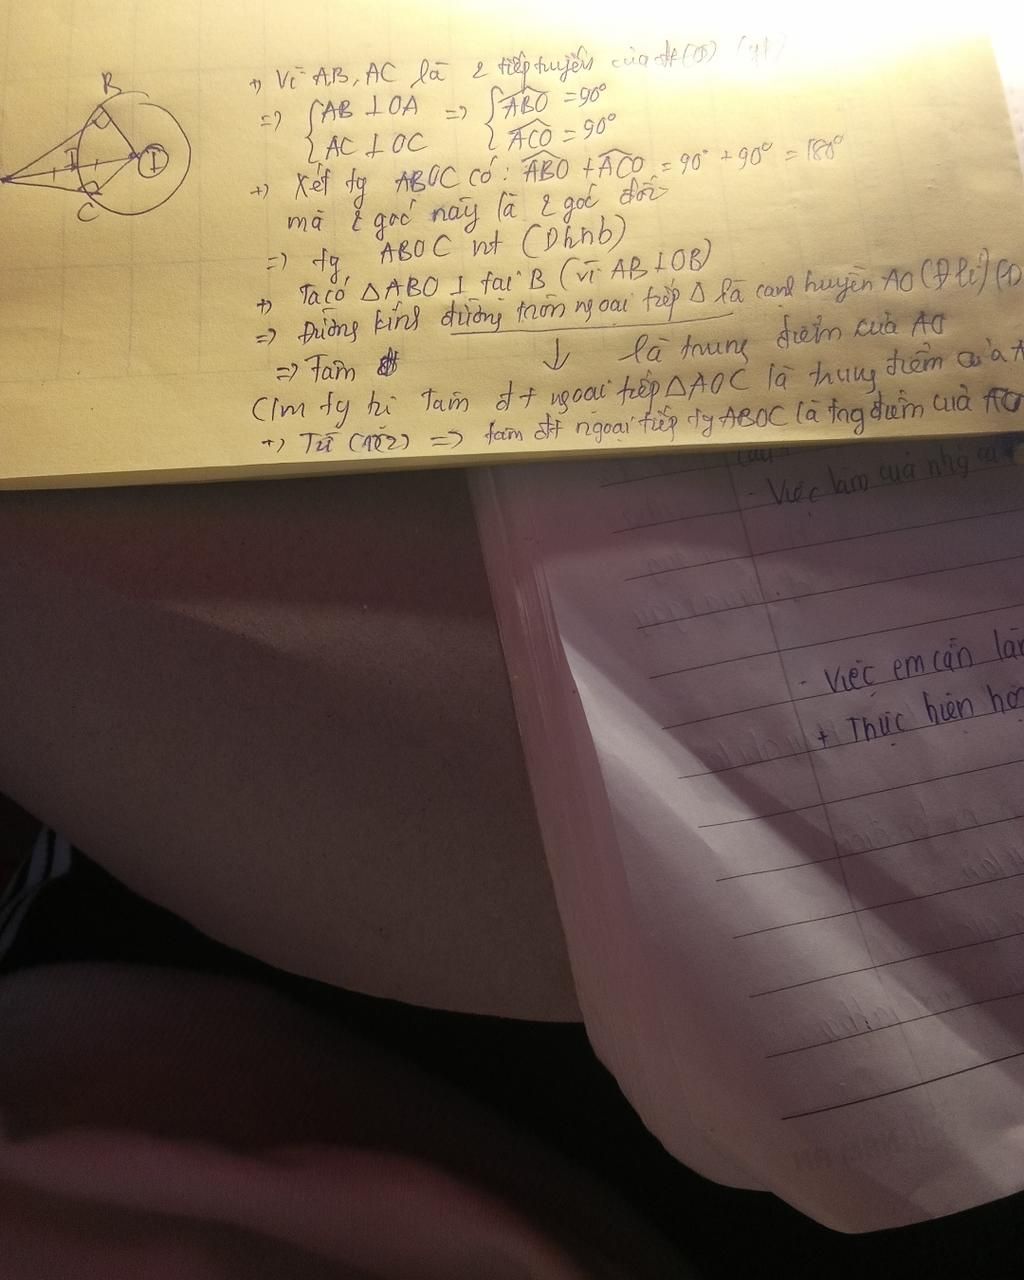 B
I
C
+) Vì AB, AC là 2 tiếp tuyến của đt (O) (gt)
=> { AB ⊥ OA => { ABO = 90°
AC ⊥ OC ACO = 90°
+) Xét tg ABOC có: ABO + ACO = 90° + 90° = 180°
mà 2 góc này là 2 góc đối
=> tg ABOC nt (Dhnb)
+) Ta có Δ ABO ⊥ tại B (vì AB ⊥ OB)
=> Đường kính đường tròn ngoại tiếp Δ là cạnh huyền AO (Đlí) (1)
=> Tâm ↓ là trung điểm của AO
Clm tg tì tâm đt ngoại tiếp ΔAOC là trung điểm của A
+) Từ (1)(2) => tâm đt ngoại tiếp tg ABOC là tng điểm của AO
- Việc làm của nhg
- Việc em cần làm
+ Thực hiện